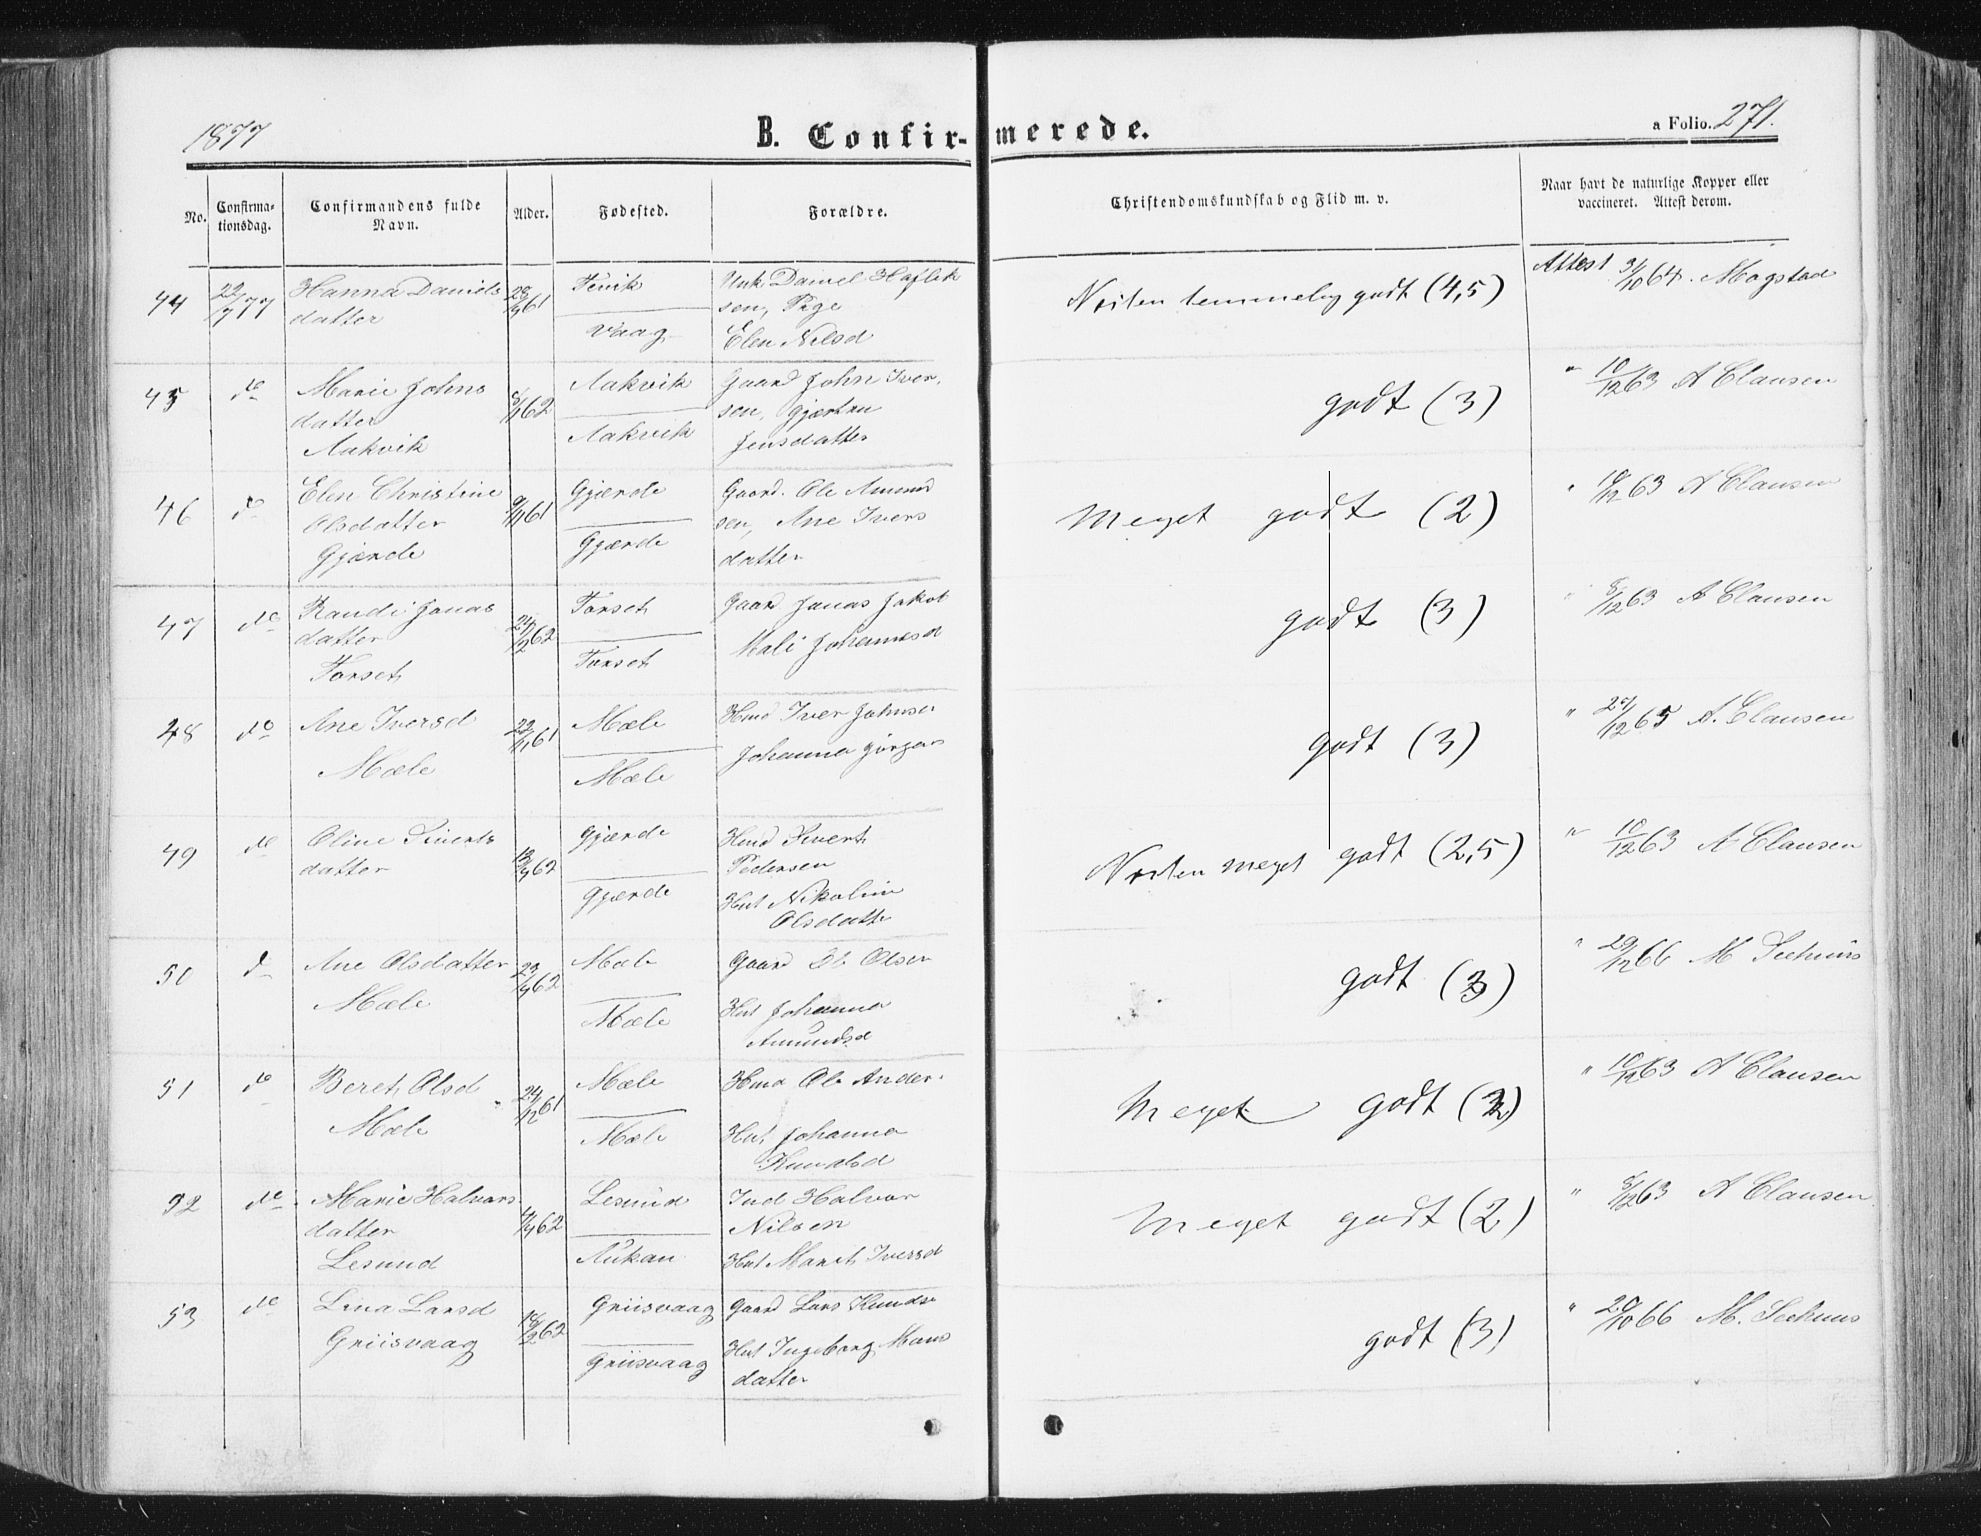 1877
B. Confir-merede.
a Folio. 271.
No.
Confirma-
tionsdag.
Confirmandens fulde
Navn.
Alder.
Fødested.
Forældre.
Christendomskundskab og Flid m. v.
Naar havt de naturlige Kopper eller
vaccineret. Attest derom.
44 22/7 77 Hanna Daniels
datter
28/9 61
Vaag
Unk Daniel
sen,
Elen Nilsd
Næsten temmelig godt (4,5)
Attest 3/10 64. Mogstad
45 do Marie Johns
datter
Aakvik
62
Aakvik
Aakvik
Gaard John Iver,
sen, Gjertru
Jensdatter
godt (3)
" 10/12 63 A Clausen
46 do Elen Christine
Olsdatter
Gjærde
9/11 61
Gjærde
Gjærde
Gaard. Ole Amund
sen, Ane Ivers
datter
Meget godt (2)
" 10/12 63 A Clausen
47 do Randi Jonas
datter
Forset
24/2 62
Forset
Forset
Gaard Jonas Jakob
Mali Johannesd
godt (3)
" 8/12 63 A Clausen
48 do Ane Iversd
Mæle
22/11 61
Mæle
Mæle
Hmd Iver Johnse
Johanna Jørgens
godt (3)
" 27/12 65 A. Clausen
49 do Oline Siverts
datter
13/9 62
Gjærde
Gjærde
Hmd Sivert
Pedersen
Hut Nikoline
Olsdatte
Næsten meget godt (2,5)
" 10/12 63 A Clausen
50 do Ane Olsdatter
Mæle
23/9 62
Mæle
Mæle
Gaard Ole Olsen
Hut Johanna
Amundsd
godt (3)
" 29/12 66 M Seehuus
51 do Beret Olsd
Mæle
24/12 61
Mæle
Mæle
Hmd Ole Ander
Hut Johanna
Knudsd
Meget godt (2)
" 10/12 63 A Clausen
52 do Marie Halvors
datter
Lesund
4/9 62
Lesund
Aukan
Ind Halvor
Nilsen
Hut Marit Iversd
Meget godt (2)
" 8/12 63 A Clausen
53 do Lina Larsd
Griisvaag
18/2 62
Griisvaag
Griisvaag
Gaard Lars Knuds
Hut Ingeborg Mons
datter
godt (3)
" 20/10 66 M. Seehuus